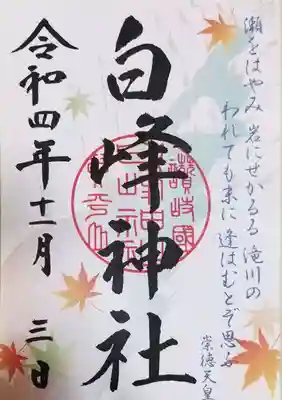 瀬をはやみ 岩にせかるる 滝川の
われても末に 逢はむとぞ思ふ
崇徳天皇
白峰神社
讃岐國
令和四年十一月 三日